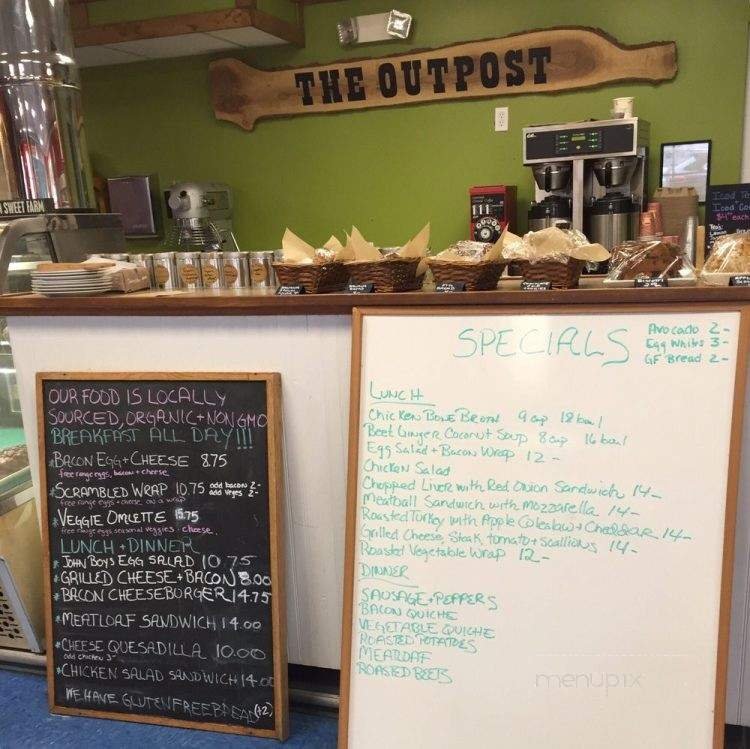 THE OUTPOST
SWEET FARM
Iced
Iced
$4 each
SPECIALS
Avocado 2-
Egg Whites 3-
GF Bread 2-
LUNCH
Chicken Bone Broth 9 cup 18 bowl
Beet Ginger Coconut Soup 8 cup 16 bowl
Egg Salad + Bacon Wrap 12-
Chicken Salad
Chopped Liver with Red Onion Sandwich 14-
Meatball Sandwich with Mozzarella 14-
Roasted Turkey with Apple Coleslaw + Cheddar 14-
Grilled Cheese, Steak, tomato + Scallions 14-
Roasted Vegetable Wrap 12-
DINNER
SAUSAGE + PEPPERS
BACON QUICHE
VEGETABLE QUICHE
ROASTED POTATOES
MEATLOAF
ROASTED BEETS
OUR FOOD IS LOCALLY
SOURCED, ORGANIC + NON GMO
BREAKFAST ALL DAY!!!
*BACON EGG + CHEESE 8.75
free range eggs, bacon + cheese
*SCRAMBLED WRAP 10.75 add bacon 2-
add veges 2-
free range eggs + cheese on a wrap
*VEGGIE OMLETTE 15.75
free range eggs, seasonal veggies + cheese
LUNCH + DINNER
*JOHN BOY'S EGG SALAD 10.75
*GRILLED CHEESE + BACON 8.00
*BACON CHEESEBURGER 14.75
*MEATLOAF SANDWICH 14.00
*CHEESE QUESADILLA 10.00
add chicken 3-
*CHICKEN SALAD SANDWICH 14.00
WE HAVE GLUTEN FREE BREAD (+2)
menupix